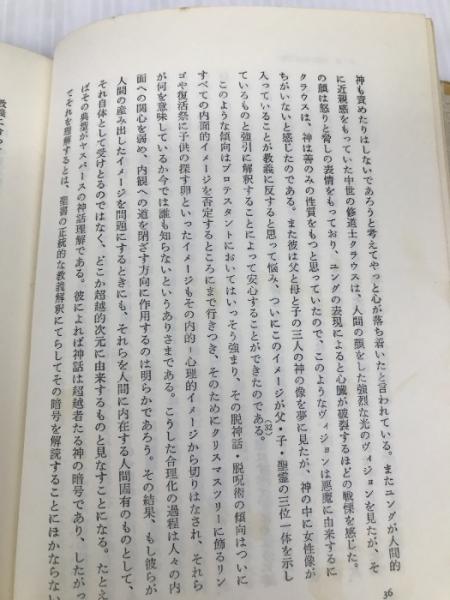 神も責めたりはしないであろうと考えてやっと心が落ち着いたと言われている。またユングが人間的
に近親感をもっていた中世の修道士クラウスは、人間の顔をした強烈な光のヴィジョンを見たが、そ
の顔は怒りと脅しの表情をもっており、ユングの表現によると心臓が破裂するほどの戦慄を感じた。
クラウスは、神は善のみの性質をもつと思っていたので、このようなヴィジョンは悪魔に由来するに
ちがいないと感じたのである。また彼は父と母と子の三人の神の像を夢に見たが、神の中に女性像が
入っていることが教義に反すると思って悩み、ついにこのイメージが父・子・聖霊の三位一体を示し
ているものと強引に解釈することによって安心することができたのである。(32)
このような傾向はプロテスタントにおいてはいっそう強まり、その脱神話・脱呪術の傾向はついに
すべての内面的イメージを否定するところにまで行きつき、そのためにクリスマスツリーに飾るリン
ゴや復活祭に子供の探す卵といったイメージもその内的-心理的イメージから切りはなされ、それら
が何を意味しているか今では誰も知らないというありさまである。こうした合理化の過程は人々の内
面への関心を弱め、内観への道を閉ざす方向に作用するのは明らかであろう。その結果、もし彼らが
人間の産み出したイメージを問題にするときにも、それらを人間に内在する人間固有のものとして、
それ自体として受けとるのではなく、どこか超越的次元に由来するものと見なすことになる。たとえ
ばその典型がヤスパースの神話理解である。彼によれば神話は超越者たる神の暗号であり、したがっ
てそれを理解するとは、聖書の正統的な教義解釈にてらしてその暗号を解読することにほかならない
36